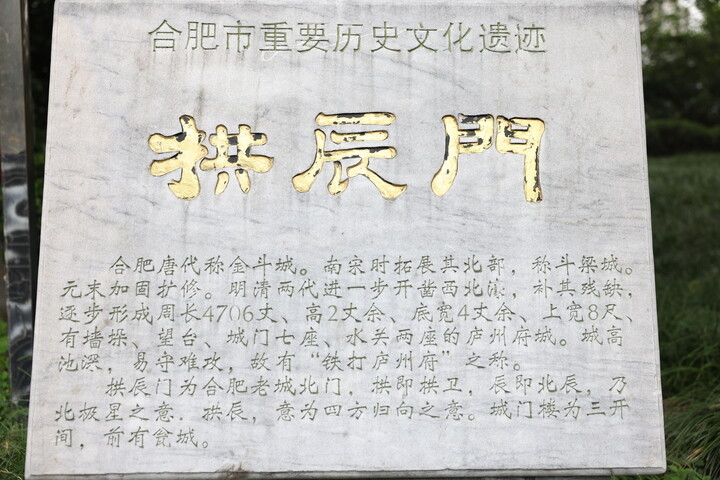 合肥市重要历史文化遗迹
拱辰門
合肥唐代称金斗城。南宋时拓展其北部，称斗梁城。
元末加固扩修。明清两代进一步开凿西北濠，补其残缺，
逐步形成周长4706丈、高2丈余、底宽4丈余、上宽8尺、
有墙垛、望台、城门七座、水关两座的庐州府城。城高
池深，易守难攻，故有“铁打庐州府”之称。
拱辰门为合肥老城北门，拱即拱卫，辰即北辰，乃
北极星之意．拱辰，意为四方归向之意。城门楼为三开
间，前有瓮城。